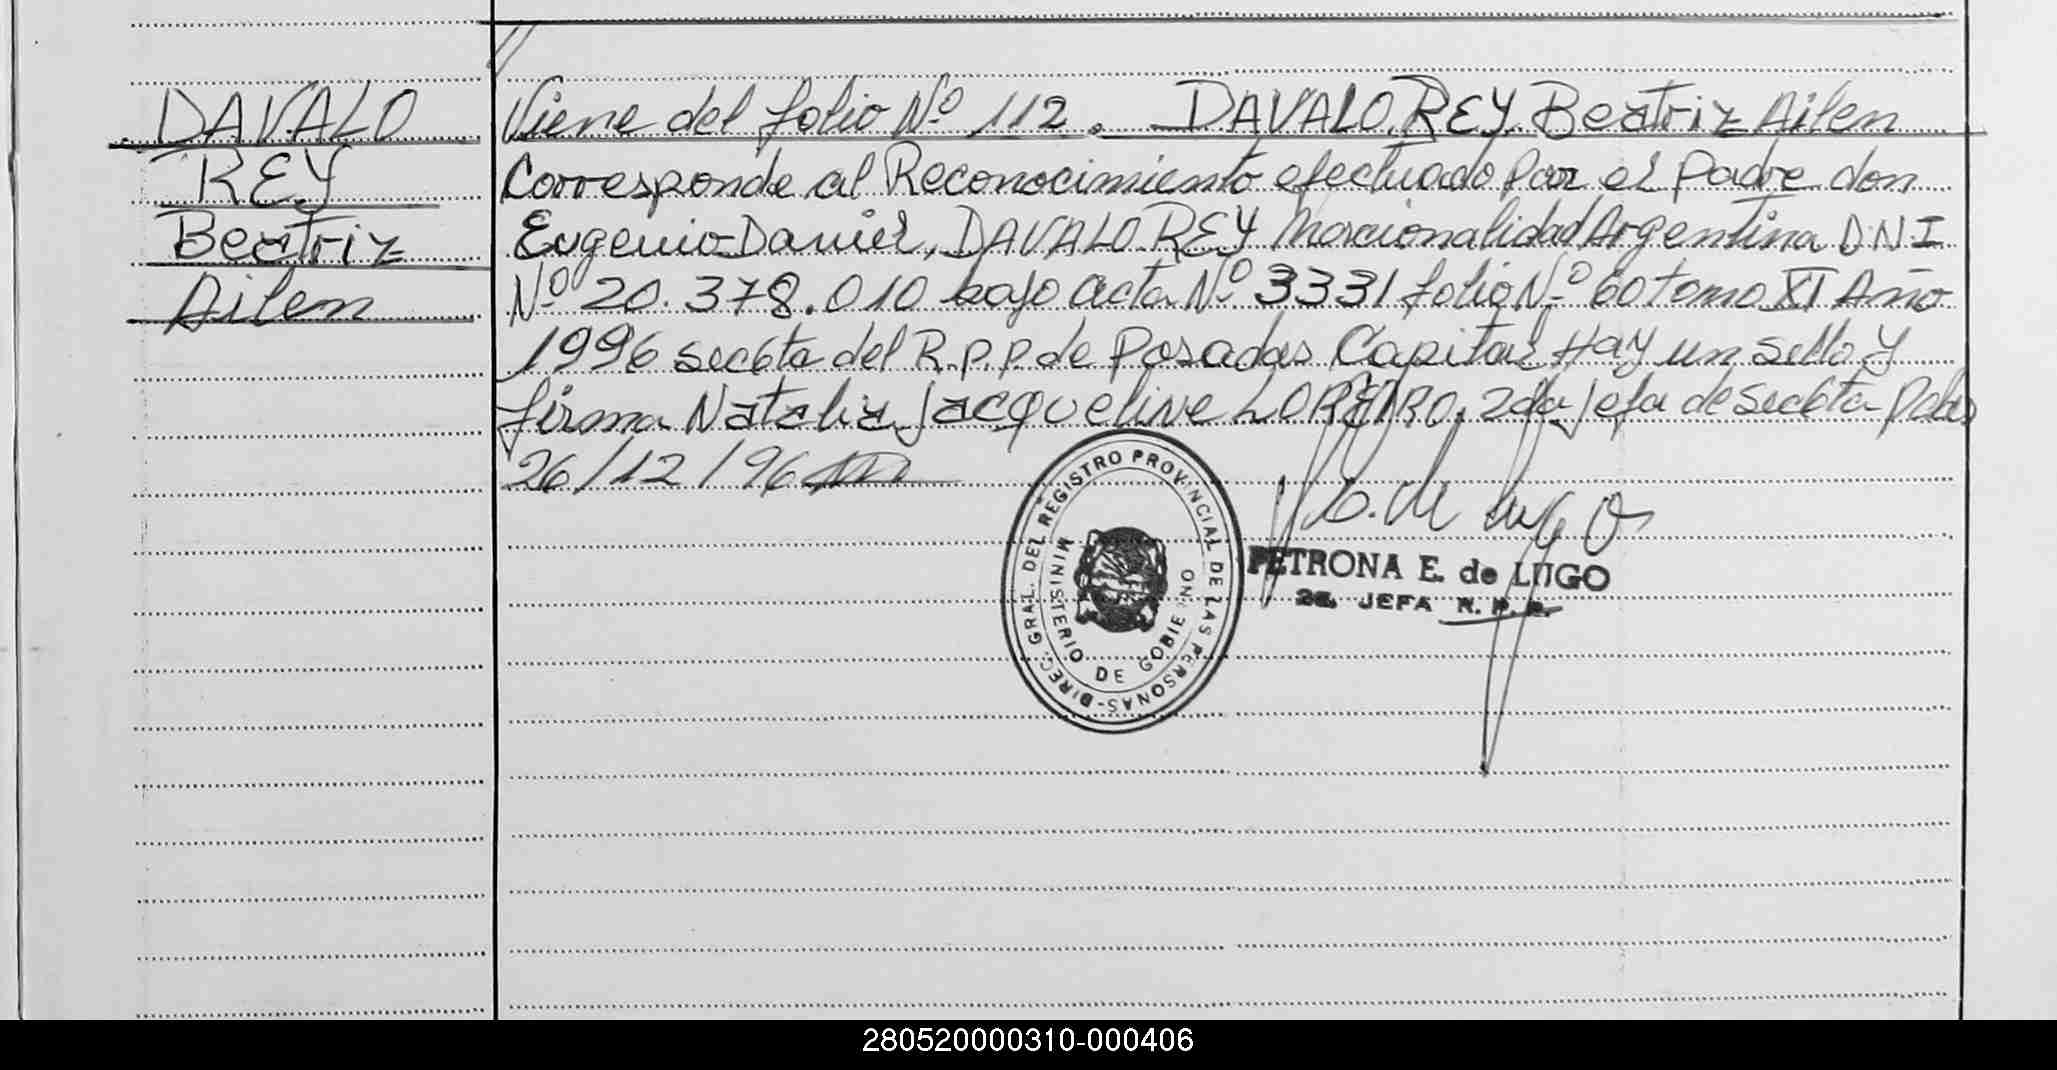 DAVALO
REY
Beatriz
Ailen
Viene del folio Nº 112. DAVALO REY Beatriz Ailen
Corresponde al Reconocimiento efectuado por el Padre don
Eugenio Daniel, DAVALO REY Nacionalidad Argentina DNI
Nº 20.378.010 bajo acta Nº 3331 folio Nº 60 tomo XI Año
1996 sec 6ta del R.P.P. de Posadas Capital Hay un sello y
firma Natalia Jacqueline LOREIRO, 2da Jefa de sec 6ta Pdas
26/12/96
DIREC. GRAL. DEL REGISTRO PROVINCIAL DE LAS PERSONAS-
MINISTERIO DE GOBIERNO
PETRONA E. de LUGO
2a. JEFA R. P. P.
280520000310-000406